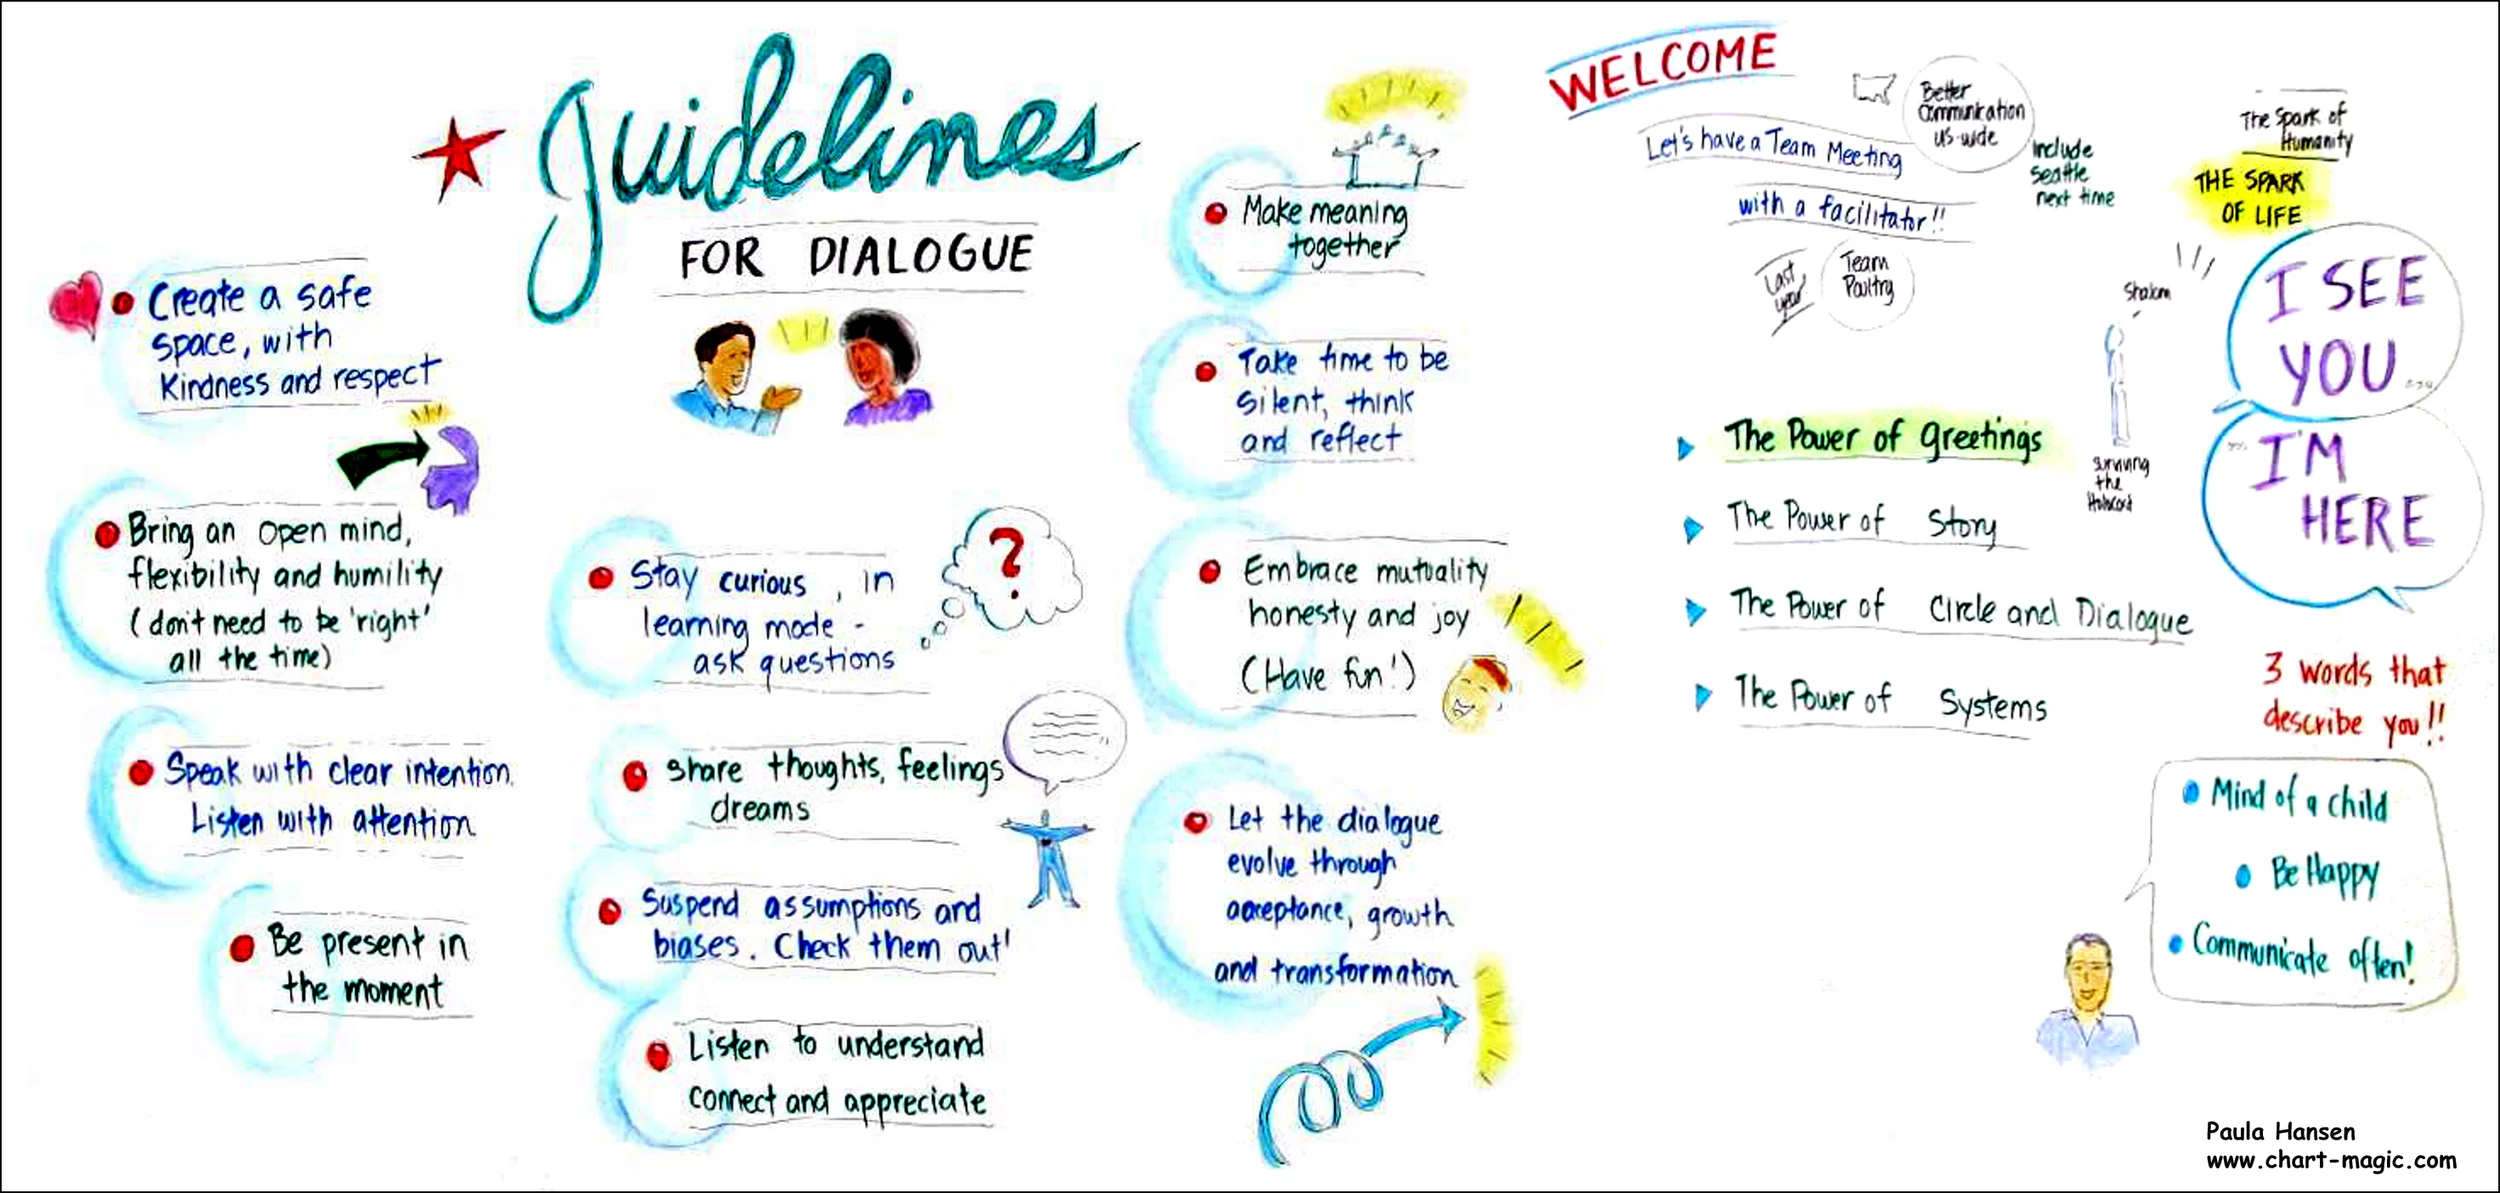 Guidelines
FOR DIALOGUE
Create a safe
space, with
Kindness and respect
Bring an open mind,
flexibility and humility
(don't need to be 'right'
all the time)
Speak with clear intention.
Listen with attention
Be present in
the moment
Stay curious, in
learning mode -
ask questions
?
share thoughts, feelings
dreams
Suspend assumptions and
biases. Check them out!
Listen to understand
connect and appreciate
Make meaning
together
Take time to be
silent, think
and reflect
Embrace mutuality
honesty and joy
(Have fun!)
Let the dialogue
evolve through
acceptance, growth
and transformation
WELCOME
Let's have a Team Meeting
with a facilitator!!
Better
Communication
US-wide
include
seattle
next time
Last
year
Team
Poultry
The Spark of
Humanity
THE SPARK
OF LIFE
Shalom
surviving
the
I SEE
YOU
I'M
HERE
The Power of Greetings
The Power of Story
The Power of Circle and Dialogue
The Power of Systems
3 words that
describe you!!
Mind of a child
Be Happy
Communicate often!
Paula Hansen
www.chart-magic.com